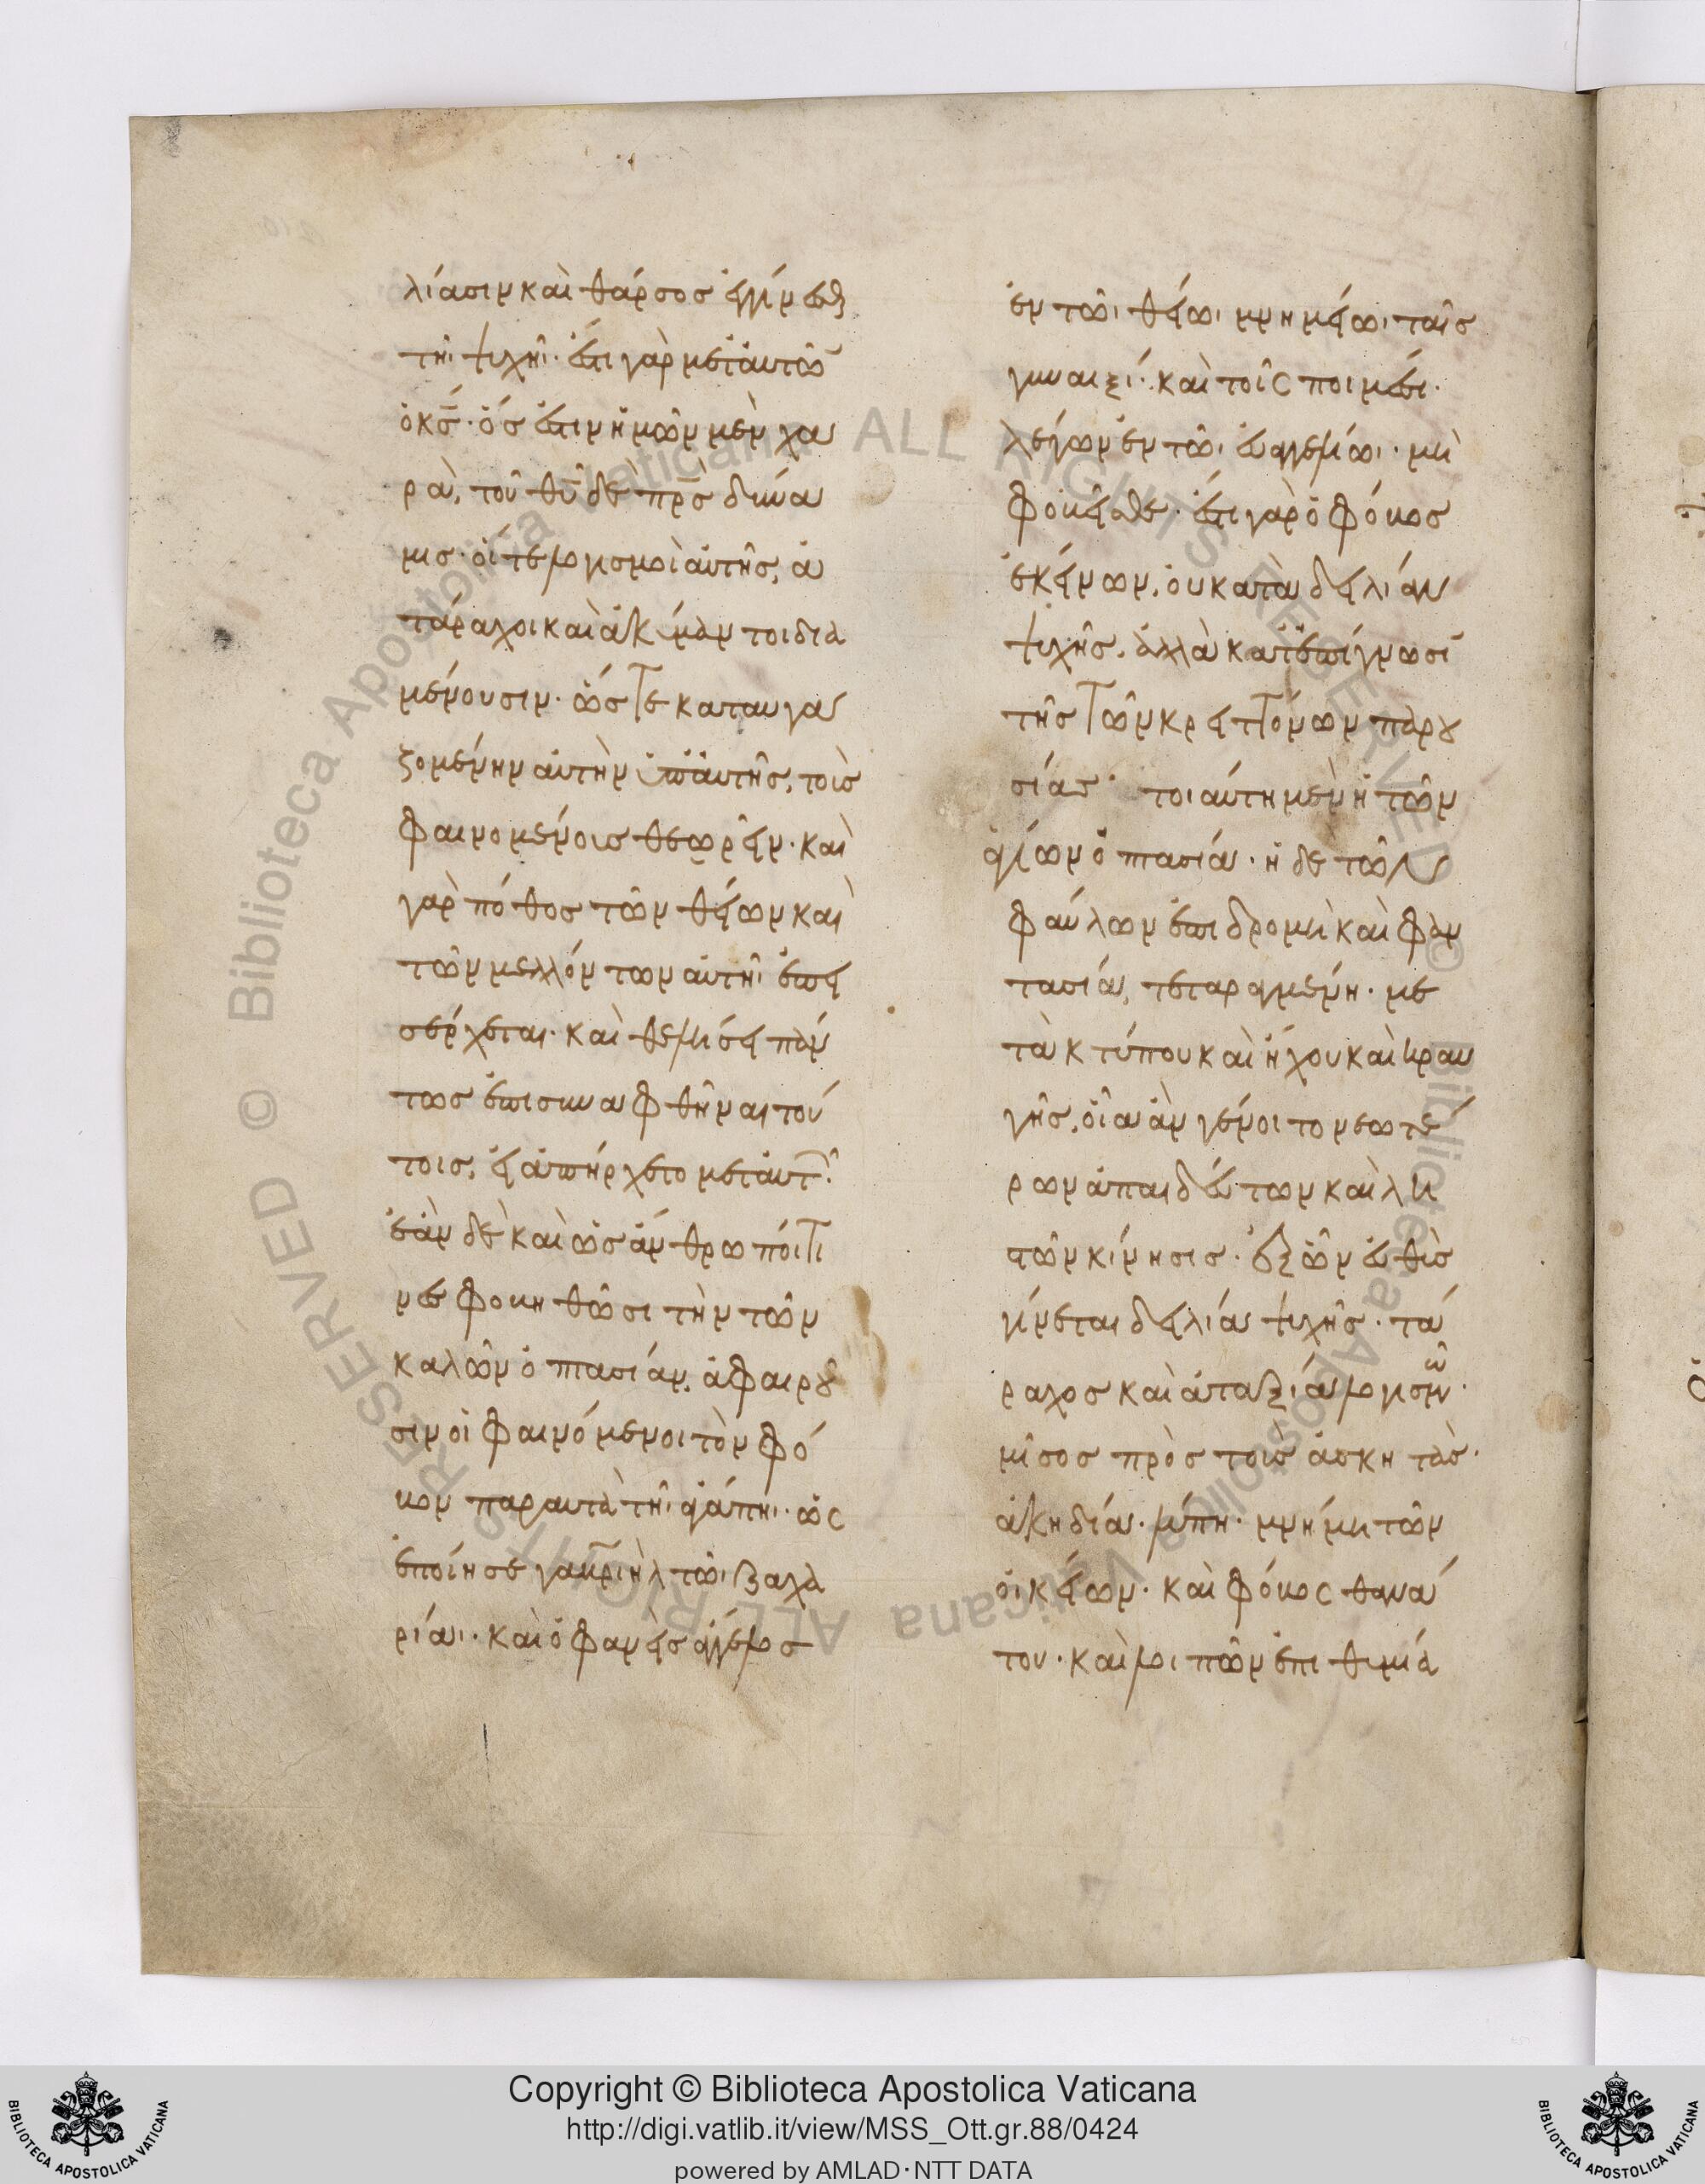 λίασιν καὶ θάρσος ἐγγίνεσθ
τῆι ψυχῆι· ἔστι γὰρ μετ' αὐτῶ
ὁ κς̄· ὅς ἐστιν ἡμῶν μὲν χα
ρὰ, τοῦ θῡ δὲ πρ̄ς δύνα
μις· οἵ τε λογισμοὶ αὐτῆς, ἀ
τάραχοι καὶ ἀκύμαντοι δια
μένουσιν· ὥστε καταυγα
ζομένην αὐτὴν ὑπ' αὐτῆς, τοὺς
φαινομένοις θεωρεῖν· καὶ
γὰρ πόθος τῶν θείων καὶ
τῶν μελλόντων αὐτῆι ἐπει
σέρχεται· καὶ θελήσει πάν
τως ἐπισυναφθῆναι τού
τοις, εἰ ἀπήρχετο μετ' αὐτ·
ἐὰν δὲ καὶ ὡς ἄνθρωποί τι
νες φοβηθῶσι τὴν τῶν
καλῶν ὀπτασίαν, ἀφαιρου
σιν οἱ φαινόμενοι τὸν φό
βον παραυτὰ τῆι ἀγάπηι· ὡς
ἐποίησε γαβριὴλ τῶι ζαχα
ρίαι· καὶ ὁ φανεὶς ἄγγελος
ἐν τῶι θείωι μνημείωι ταῖς
γυναιξί· καὶ τοῖς ποιμέσι·
λέγων ἐν τῶι εὐαγγελίωι· μὴ
φοβεῖσθε· ἔστι γὰρ ὁ φόβος
ἐκείνων, οὐ κατὰ δειλίαν
ψυχῆς, ἀλλὰ κατ' ἐπίγνωσί
τῆς τῶν κρειττόνων παρου
σίας· τοιαύτη μὲν ἡ τῶν
ἁγίων ὀπτασία· ἡ δὲ τῶν
φαύλων ἐπιδρομὴ καὶ φαν
τασία, τεταραγμένη· με
τὰ κτύπου καὶ ἤχου καὶ κραυ
γῆς, οἵα ἂν γένοιτο νεωτέ
ρων ἀπαιδεύτων καὶ λη
στῶν κίνησις· ἐξ ὧν εὐθὺς
γίνεται δειλία ψυχῆς· τά
ραχος καὶ ἀταξία λογισμῶν·
μῖσος πρὸς τοὺς ἀσκητάς·
ἀκηδία· λύπη· μνήμη τῶν
οἰκείων· καὶ φόβος θανά
του· καὶ λοιπὸν ἐπιθυμία
Copyright © Biblioteca Apostolica Vaticana
http://digi.vatlib.it/view/MSS_Ott.gr.88/0424
powered by AMLAD·NTT DATA
BIBLIOTECA APOSTOLICA VATICANA
BIBLIOTECA APOSTOLICA VATICANA
© Biblioteca Apostolica Vaticana ALL RIGHTS RESERVED
© Biblioteca Apostolica Vaticana ALL RIGHTS RESERVED